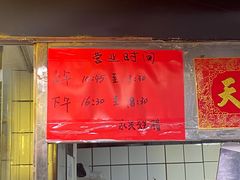 营业时间
上午 10:45 至 1:30
下午 16:30 至 8:30
天